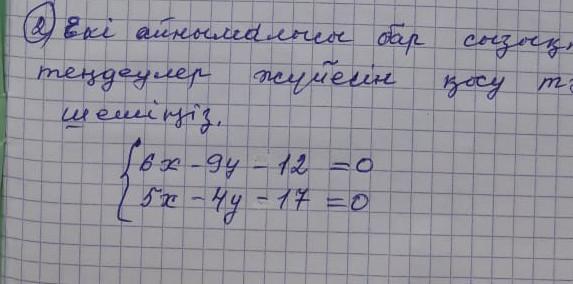 2) Екі айнымалысы бар
теңдеулер жүйесін қосу
шешіңіз.
6x - 9y - 12 = 0
5x - 4y - 17 = 0